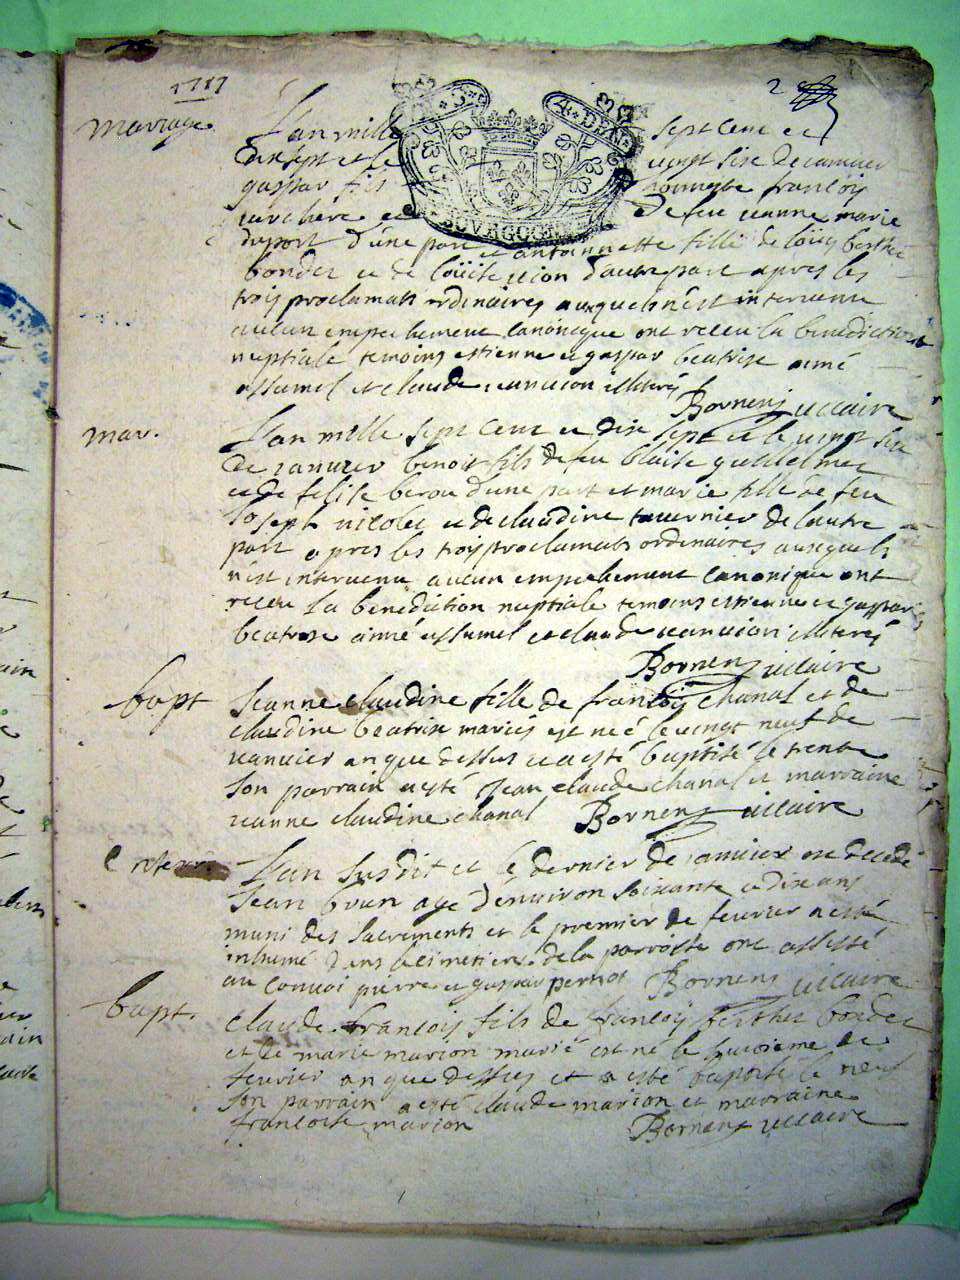 1717
2
mariage
L'an mille sept cent et
dix sept et le vingt sixe de janvier
gaspar fils françois
et de feu jeanne marie
duport d'une part et antoinette fille de loüis berthet
bondet et de loüise d'autre part apres les
trois proclamats ordinaires auxquels n'est intervenu
aucun empechement canonique ont receu la benediction
nuptiale temoins estienne et gaspar beatrise aimé
assumel et claude illiterés
Bornens viccaire
mar.
L'an mille sept cent et dix sept et le vingt six
de janvier benoit fils de feu blaise
et de felise d'une part et marie fille de feu
Joseph nicolet et de claudine tavernier de l'autre
part apres les trois proclamats ordinaires auxquels
n'est intervenu aucun empechement canonique ont
receu la benediction nuptiale temoins estienne et gaspar
beatrise aimé assumel et claude illiterés
Bornens viccaire
bapt
Jeanne claudine fille de françois chanal et de
claudine beatrise mariés est neé le vingt neuf de
janvier an que dessus et a esté baptisé le trente
son parrain a esté Jean claude chanal et marraine
jeanne claudine chanal Bornens viccaire
Enterr.
L'an susdit et le dernier de janvier est decedé
Jean brun agé d'environ soixante et dix ans
muni des sacrements et le premier de fevrier a esté
inhumé dans le cimetiere de la parroisse ont assisté
au convoi pierre et gaspar pernot Bornens viccaire
bapt.
claude françois fils de françois berthet bondet
et de marie marion marié est né le huitieme de
fevrier an que dessus et a esté baptisé le neuf
son parrain a esté claude marion et marraine
françoise marion Bornens viccaire